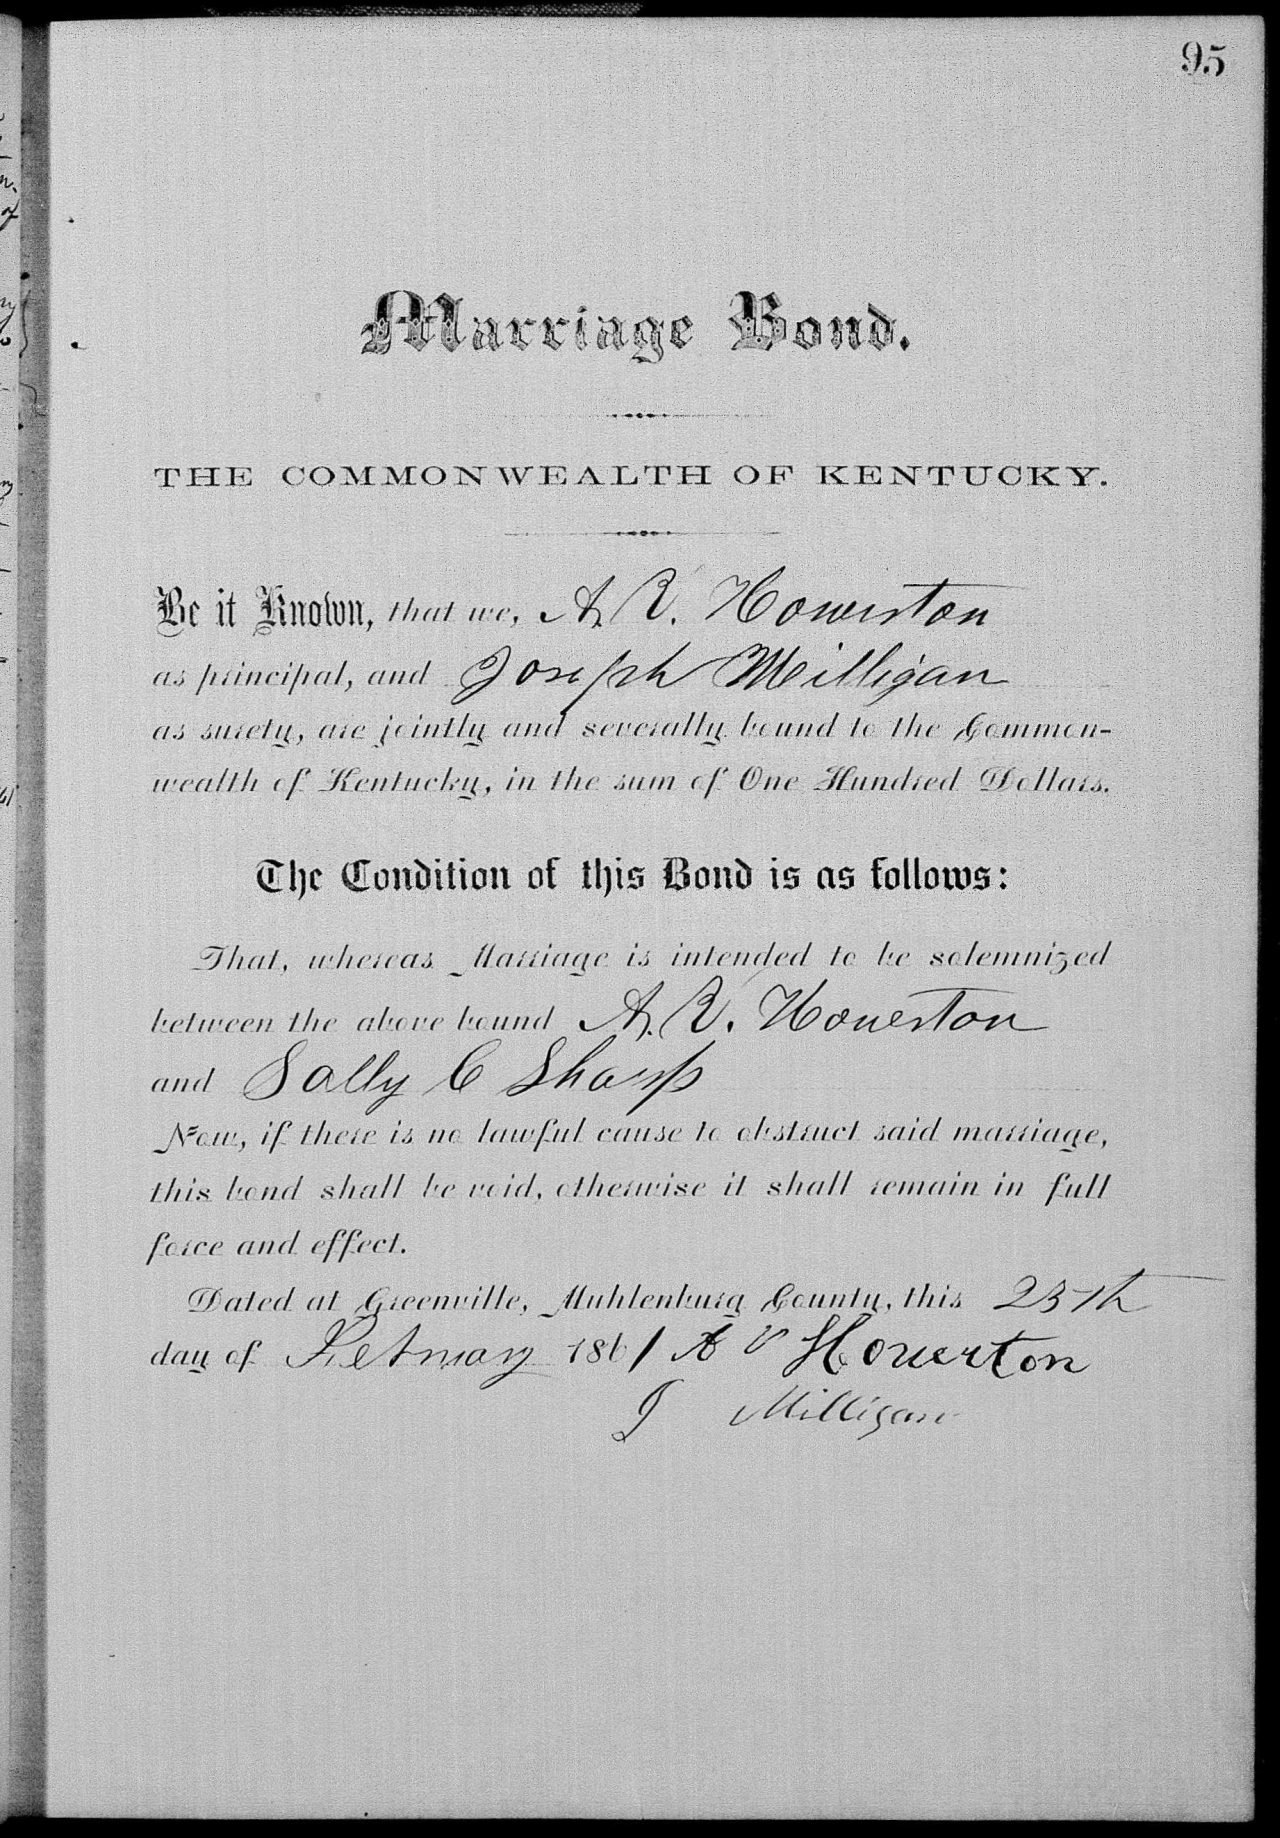 95
Marriage Bond.
THE COMMONWEALTH OF KENTUCKY.
Be it Known, that we, A. V. Howerton
as principal, and Joseph Milligan
as surety, are jointly and severally bound to the Common-
wealth of Kentucky, in the sum of One Hundred Dollars.
The Condition of this Bond is as follows:
That, whereas Marriage is intended to be solemnized
between the above bound A. V. Howerton
and Sally C Sharp
Now, if there is no lawful cause to obstruct said marriage,
this bond shall be void, otherwise it shall remain in full
force and effect.
Dated at Greenville, Muhlenburg County, this 25th
day of February 1861 A V Howerton
J Milligan